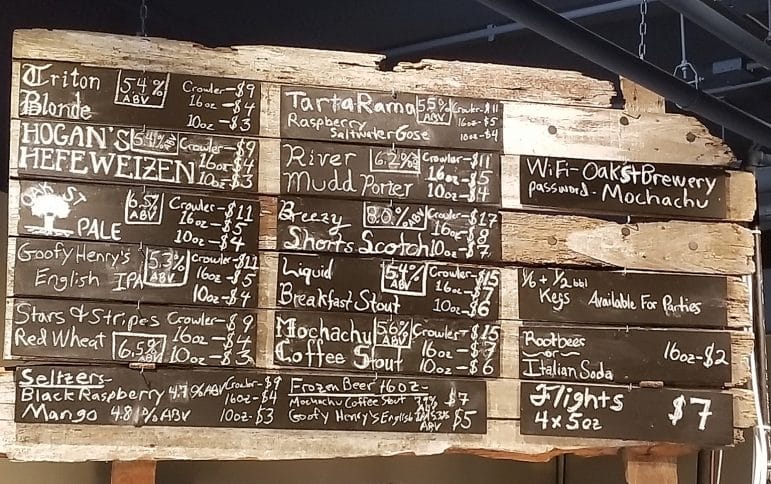 Triton Blonde 5.4% ABV Crowler-$9
16oz-$4
10oz-$3
HOGAN'S HEFEWEIZEN 5.4% Crowler-$9
16oz-$4
10oz-$3
OAK ST PALE 6.5% ABV Crowler-$11
16oz-$5
10oz-$4
Goofy Henry's English IPA 5.3% ABV Crowler-$11
16oz-$5
10oz-$4
Stars & Stripes Red Wheat 6.5% ABV Crowler-$9
16oz-$4
10oz-$3
Seltzers-
Black Raspberry 4.7% ABV Crowler-$9
16oz-$4
Mango 4.8% ABV 10oz-$3
TartaRama 5.5% ABV Crowler-$11
Raspberry 16oz-$5
Saltwater Gose 10oz-$4
River Mudd Porter 6.2% Crowler-$11
16oz-$5
10oz-$4
Breezy Shorts Scotch 8.0% ABV Crowler-$17
16oz-$8
10oz-$7
Liquid Breakfast Stout 5.4% ABV Crowler-$15
16oz-$7
10oz-$6
Mochachu Coffee Stout 5.6% ABV Crowler-$15
16oz-$7
10oz-$6
Frozen Beer 16oz-
Mochachu Coffee Stout $7
Goofy Henry's English IPA ABV $5
WiFi-OakStBrewery
password-Mochachu
1/6 + 1/2 bbl
Kegs Available For Parties
Rootbeer
or
Italian Soda 16oz-$2
Flights
4x5oz $7